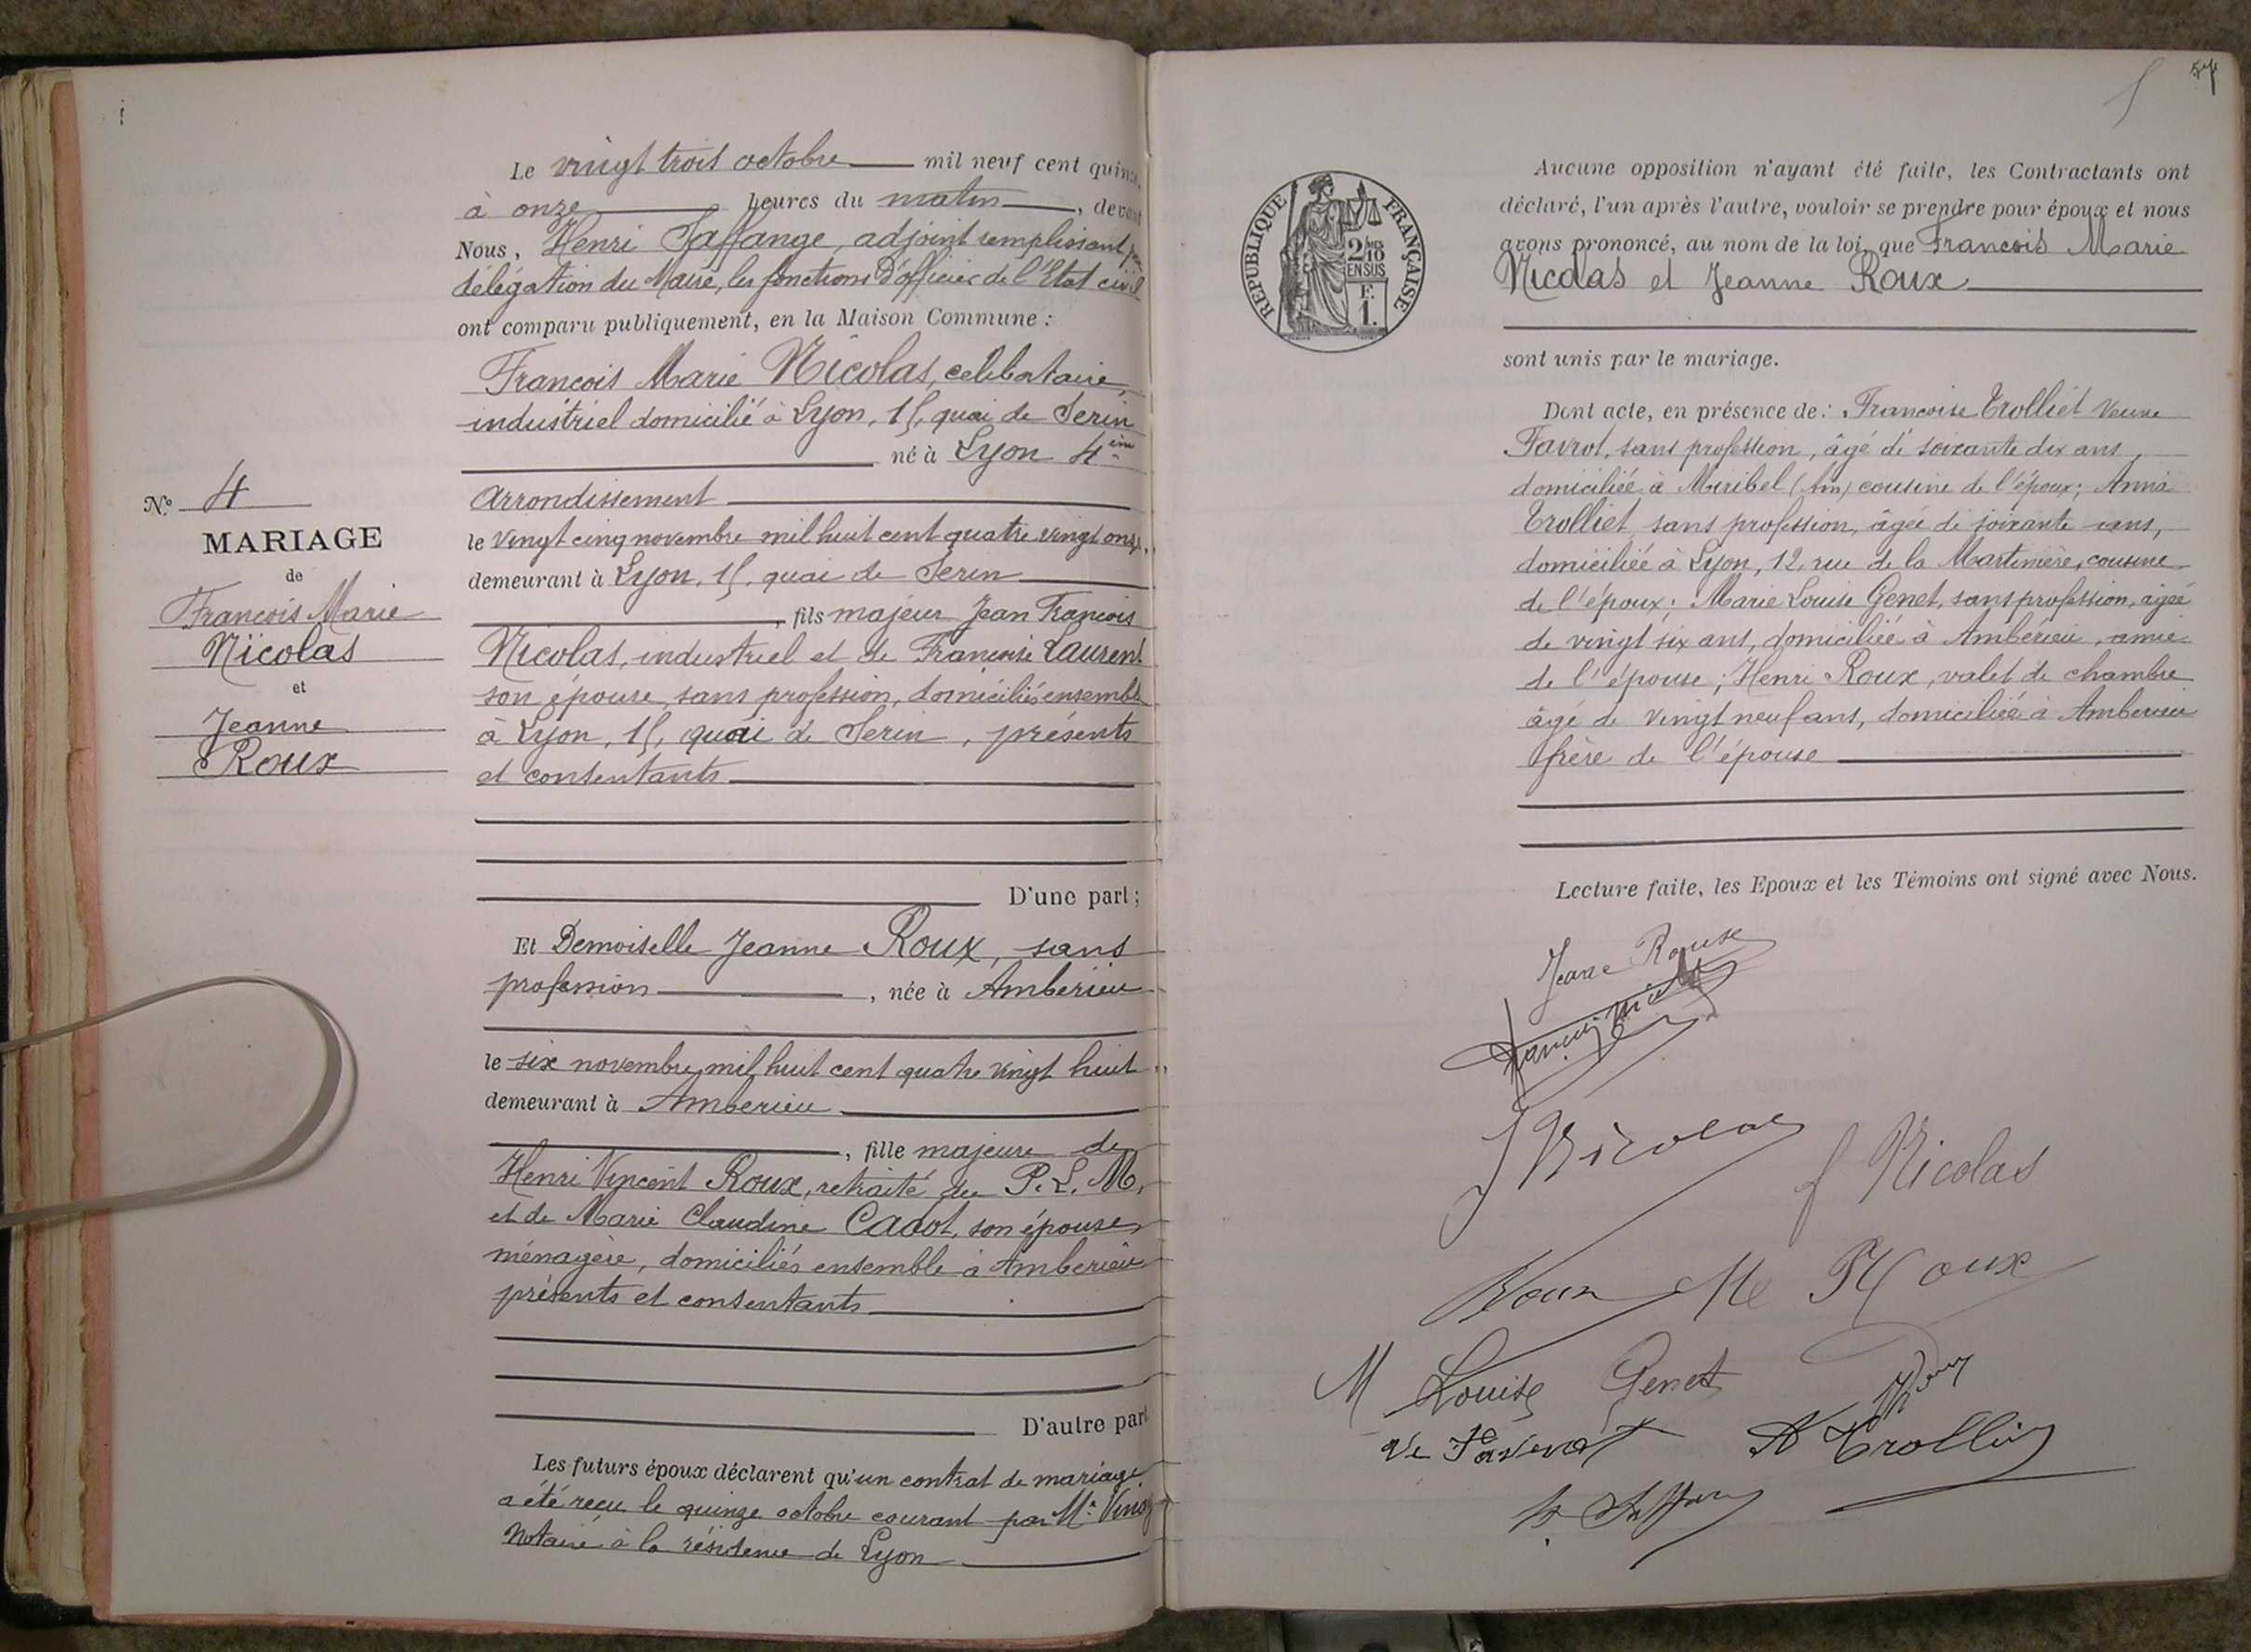 Le vingt trois octobre mil neuf cent quinze,
à onze heures du matin, devant
Nous, Henri Jaffange, adjoint remplissant par
délégation du Maire, les fonctions d'officier de l'Etat civil
ont comparu publiquement, en la Maison Commune :
François Marie Nicolas, celibataire,
industriel domicilié à Lyon, 15, quai de Serin
né à Lyon 4ème
arrondissement
le vingt cinq novembre mil huit cent quatre vingt onze,
demeurant à Lyon, 15, quai de Serin
, fils majeur Jean François
Nicolas, industriel et de Françoise Laurent
son épouse, sans profession, domiciliés ensemble
à Lyon, 15, quai de Serin, présents
et consentants
D'une part ;
Et Demoiselle Jeanne Roux, sans
profession, née à Ambérieu
le six novembre mil huit cent quatre vingt huit,
demeurant à Amberieu
, fille majeure de
Henri Vincent Roux, retraité du P. L. M,
et de Marie Claudine Cadot, son épouse,
ménagère, domiciliés ensemble à Amberieu
présents et consentants
D'autre part
Les futurs époux déclarent qu'un contrat de mariage
a été reçu le quinze octobre courant par Me
Notaire à la résidence de Lyon
N.º 4
MARIAGE
de
François Marie
Nicolas
et
Jeanne
Roux
RÉPUBLIQUE FRANÇAISE
2/10
EN SUS
F.
1.
Aucune opposition n'ayant été faite, les Contractants ont
déclaré, l'un après l'autre, vouloir se prendre pour époux et nous
avons prononcé, au nom de la loi, que François Marie
Nicolas et Jeanne Roux
sont unis par le mariage.
Dont acte, en présence de : Françoise Trolliet veuve
Favrot, sans profession, âgé de soixante dix ans,
domiciliée à Miribel (Ain) cousine de l'époux; Anna
Trolliet, sans profession, âgée de soixante ans,
domiciliée à Lyon, 12, rue de la Martinière, cousine
de l'époux; Marie Louise Genet, sans profession, âgée
de vingt six ans, domiciliée à Ambérieu, amie
de l'épouse; Henri Roux, valet de chambre
âgé de vingt neuf ans, domiciliée à Amberieu
frère de l'épouse
Lecture faite, les Epoux et les Témoins ont signé avec Nous.
Jeanne Roux
J Nicolas
f Nicolas
Roux
Me Roux
M Louise Genet
Ve Favrot
A Trolliet